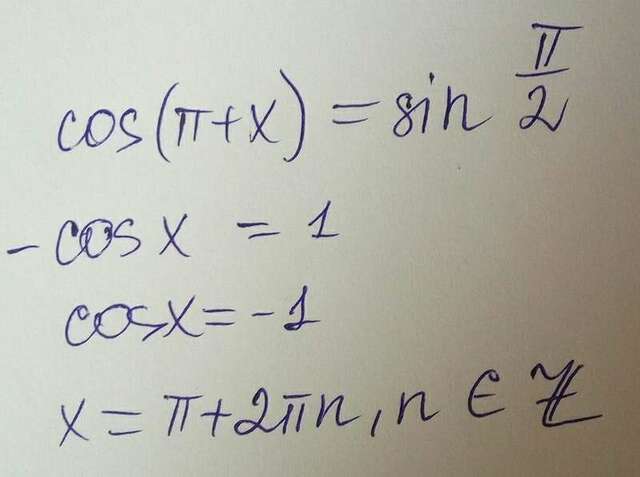 cos(π+x) = sin π/2
-cosx = 1
cosx = -1
x = π+2πn, n ∈ ℤ